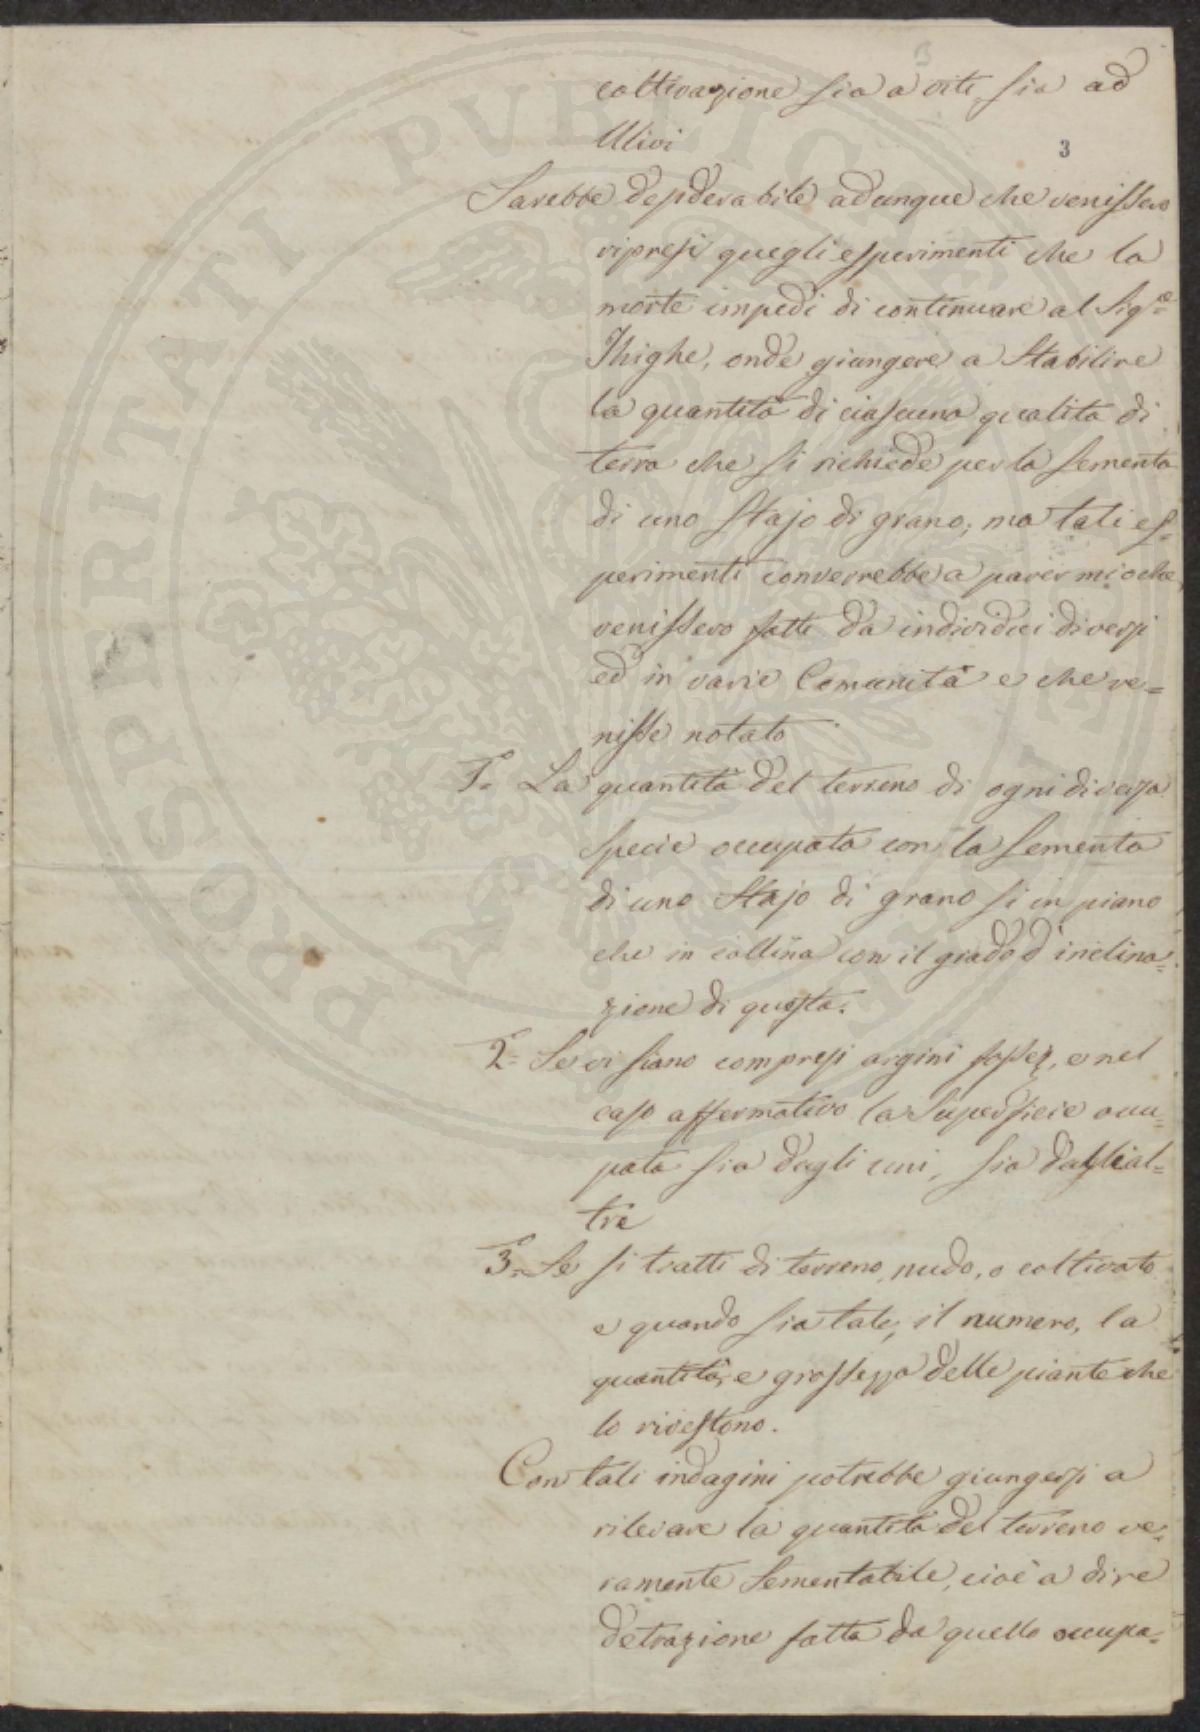 coltivazione sia a viti, sia ad
3
Ulivi
Sarebbe desiderabile adunque che venissero
ripresi quegli esperimenti che la
morte impedì di continuare al Sig.re
Thighe, onde giungere a stabilire
la quantità di ciascuna qualità di
terra che si richiede per la sementa
di uno stajo di grano; ma tali es=
perimenti converrebbe a parer mio che
venissero fatti da individui diversi
ed in varie Comunità e che ve=
nisse notato
1.o La quantità del terreno di ogni diversa
specie occupata con la sementa
di uno stajo di grano sì in piano
che in collina con il grado d'inclina=
zione di questa.
2.o Se vi siano compresi argini fosse, e nel
caso affermativo la Superficie occu=
pata sia dagli uni, sia dall'al=
tre
3.o Se si tratti di terreno nudo, o coltivato
e quando sia tale, il numero, la
quantità, e grossezza delle piante che
lo rivestono.
Con tali indagini potrebbe giungersi a
rilevare la quantità del terreno ve=
ramente Sementabile, cioè a dire
detrazione fatta da quello occupa=
PROSPERITATI PVBLICAE